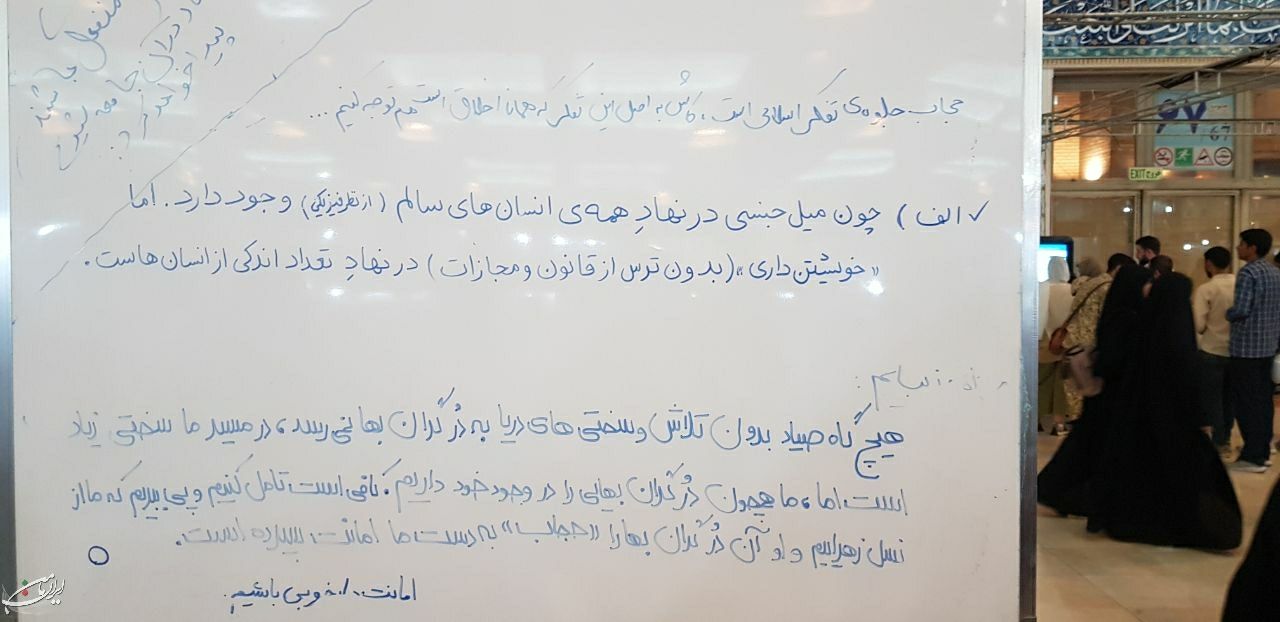 منفعل باشند
حجاب جلوه‌ی تفکر اسلامی است، کاش به اصل این تفکر که همانا اخلاق است هم توجه کنیم ...
✓ الف) چون میل جنسی در نهادِ همه‌ی انسان‌های سالم (از نظر فیزیکی) وجود دارد. اما
«خویشتن‌داری» (بدون ترس از قانون و مجازات) در نهادِ تعداد اندکی از انسان‌هاست.
هیچ گاه صیاد بدون تلاش و سختی های دریا به دُر گران بها نمی رسد، در مسیر ما سختی زیاد
است اما، ما همچون دُر گران بهایی را در وجود خود داریم. کافی است تامل کنیم و پی ببریم که ما از
نسل زهراییم و او آن دُر گران بها را «حجاب» به دست ما امانت سپرده است.
امانت‌دار خوبی باشیم.
۶۷
67
EXIT خروج
ایران ما